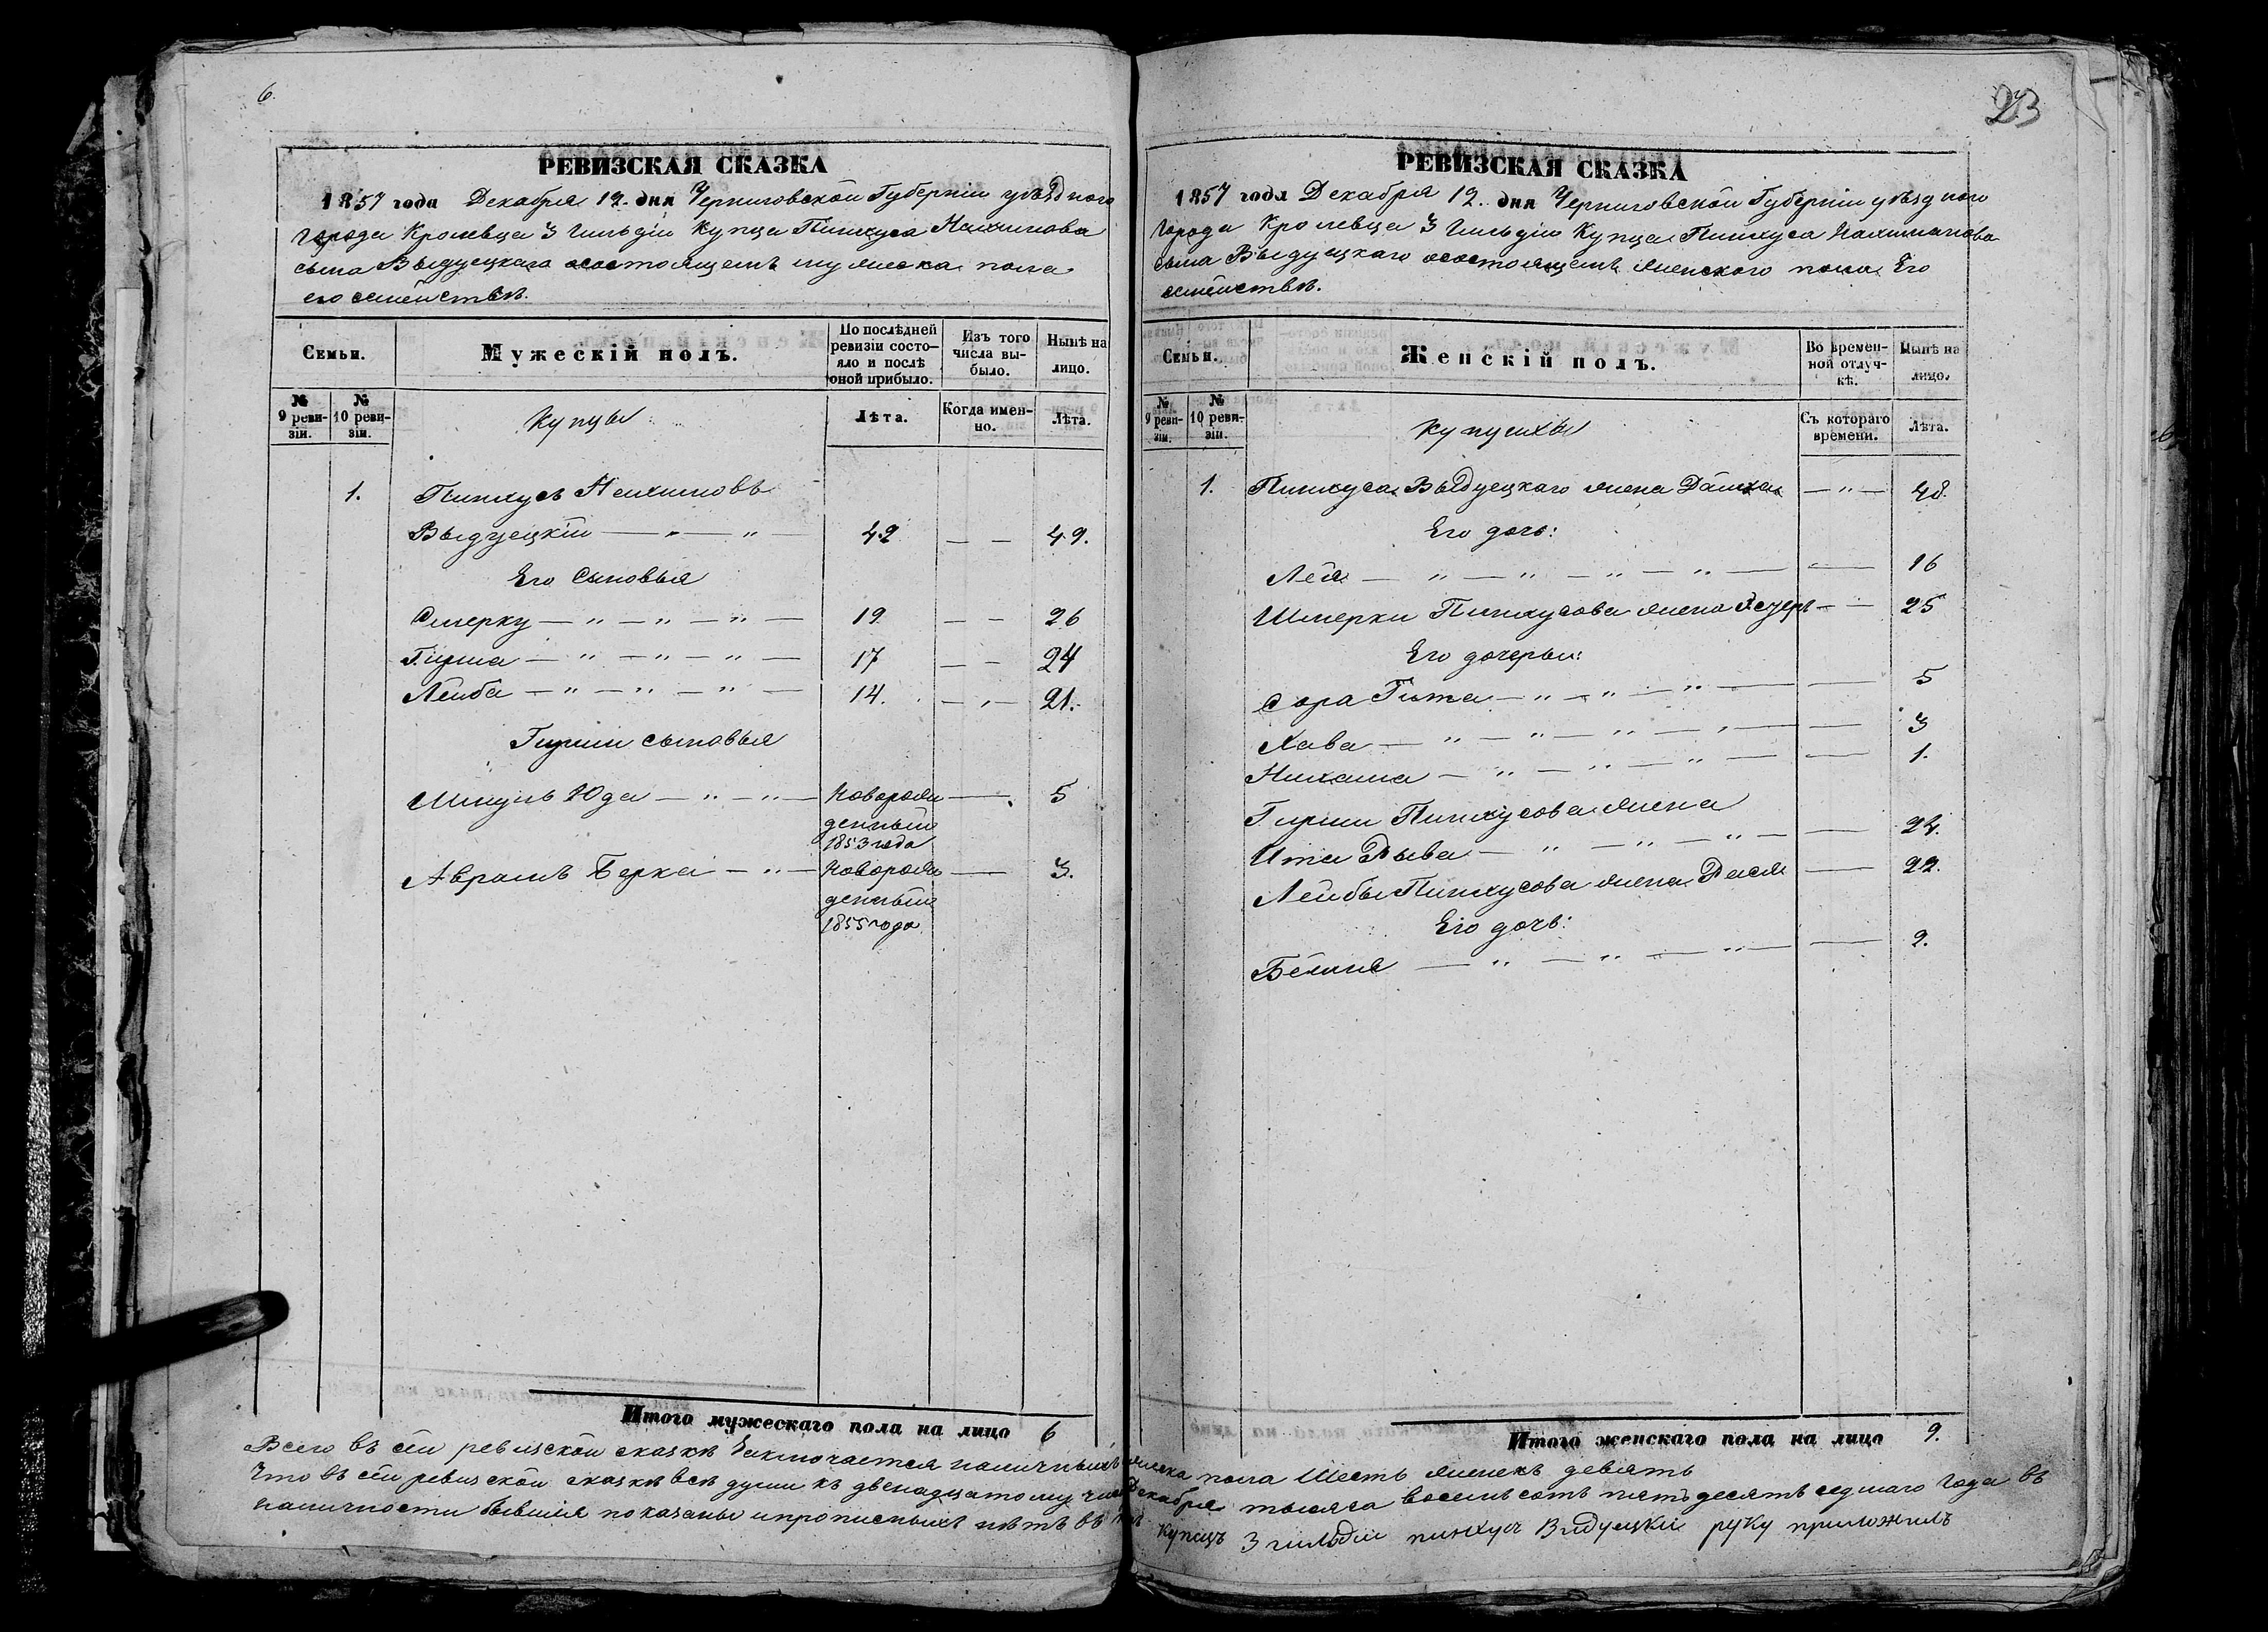 6.
РЕВИЗСКАЯ СКАЗКА
1857 года Декабря 12. дня Черниговской Губерніи уѣзднаго
города Кролевца 3 Гильдіи Купца Пинхуса Нахимова
сына Выдуцкаго осостоящемъ мужеска пола
его семействѣ.
Семьи.
Мужескій полъ.
По послѣдней ревизіи состояло и послѣ оной прибыло.
Изъ того числа выбыло.
Нынѣ на лицо.
№ 9 ревизіи.
№ 10 ревизіи.
Купцы
Лѣта.
Когда именно.
Лѣта.
1. Пинхусъ Нахимовъ
Выдуцкій — " — " — 42 — — 49.
Его Сыновья
Шмерку — " — " — " — 19 — — 26
Гирша — " — " — " — 17 — — 24
Лейба — " — " — " — 14. — " — 21.
Гирши сыновья
Юда — " — " — Новорож — 5
денный
1853 года
Абрамъ Берка — " — Новорож — 3.
денный
1855 года
Итого мужескаго пола на лицо 6
23
РЕВИЗСКАЯ СКАЗКА
1857 года Декабря 12. дня Черниговской Губерніи уѣзднаго
города Кролевца 3 Гильдіи Купца Пинхуса Нахимова
сына Выдуцкаго осостоящемъ женскаго пола Его
семействѣ.
Семьи.
Женскій полъ.
Во временной отлучкѣ.
Нынѣ на лицо.
№ 9 ревизіи.
№ 10 ревизіи.
Купчихи
Съ котораго времени.
Лѣта.
1. Пинхуса Выдуцкаго жена — " — 48.
Его дочь:
Лея — " — " — " — " — — 16
Шмерки Пинхусова жена — — 25
Его дочерьи:
Сора Гита — " — " — " — — 5
Хава — " — " — " — " — — 3
— " — " — " — — 1.
Гирши Пинхусова жена
Ита Рыва — " — " — " — — 24.
Лейбы Пинхусова жена Рася — 22.
Его дочь:
— " — " — " — — 2.
Итого женскаго пола на лицо 9.
Всего въ сей ревизской сказкѣ Заключается наличныхъ мужеска пола Шесть женскъ девять
Что въ сей ревизской сказкѣ всѣ души къ двенадцатому числу Декабря тысяча восемьсотъ пятьдесятъ седмаго Года въ
наличности бывшія показаны ипрописныхъ нѣтъ въ томъ Купецъ 3 гильдіи пинхусъ Выдуцкій руку приложилъ